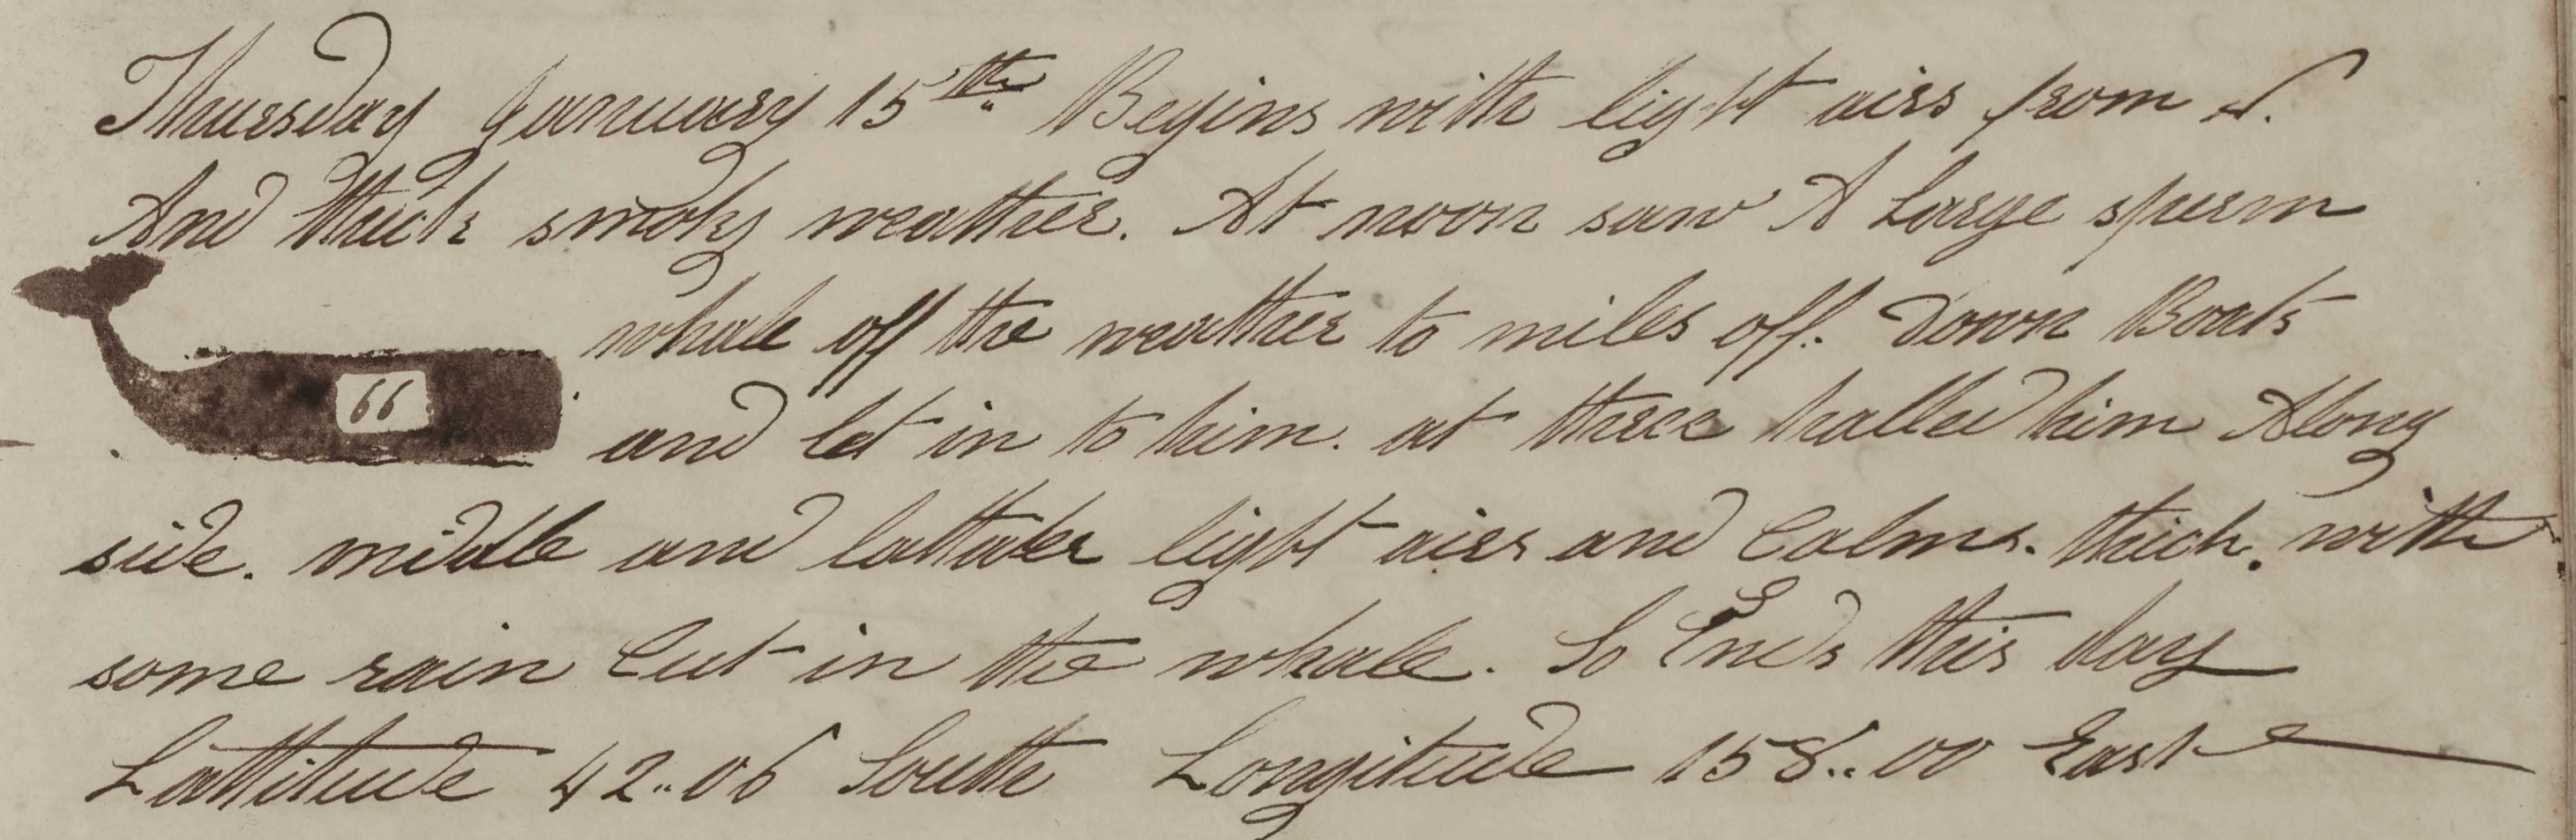 Thursday January 15th Begins with light airs from S.
And thick smoky weather. At noon saw A Large sperm
whale off the weather to miles off. Down Boats
66
and let in to him. at three halled him Along
side. middle and lattater light airs and Calms. thick. with
some rain Cut in the whale. So Ends this day
Lattitude 42..06 South Longitude 158..00 East